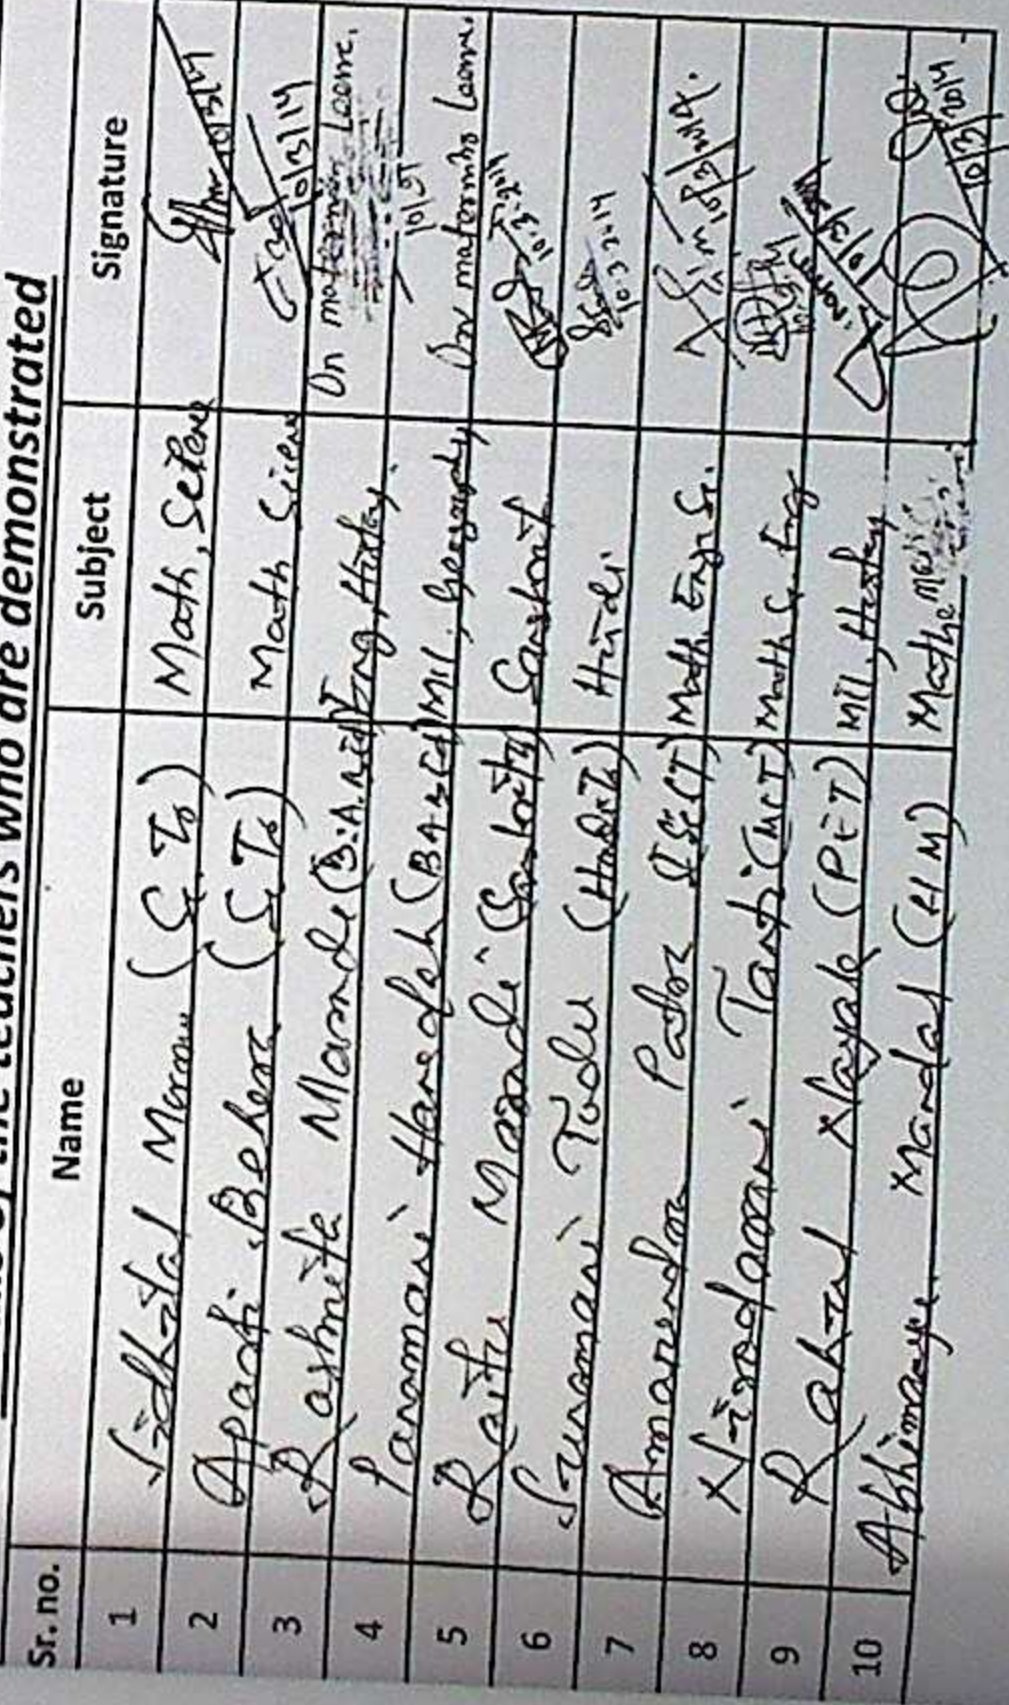 of the teachers who are demonstrated
Sr. no. Name Subject Signature
1 Sidhlal Murmu (Sc. Tr) Math, Science 10/3/14
2 Aparti Behera (Sc. Tr) Math Science 10/3/14
3 Rashmita Marndi (B.A. B.Ed) Eng, History. On maternity Leave.
4 Paramani Hansdah (BA B.Ed) MIL, Geography On maternity Leave.
5 Raitu Marndi (Sanskrit Tr) Sanskrit 10.3.2014
6 Surumani Tudu (Hindi Tr) Hindi. 10.3.2014
7 Amarendra Patra (Sc.T) Math Eng Sc.
8 Nirodamani Tanti (MCT) Math Sc. Eng
9 Rahul Nayak (PET) MIL, History
10 Abhimanyu Mandal (HM) Mathematics 10/3/2014